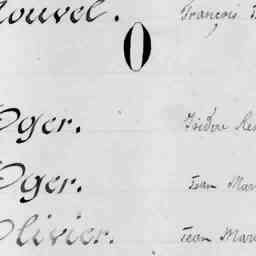 ouvel. François
O
Oger. Isidore
Oger. Jean Mar
Olivier. Jean Mar